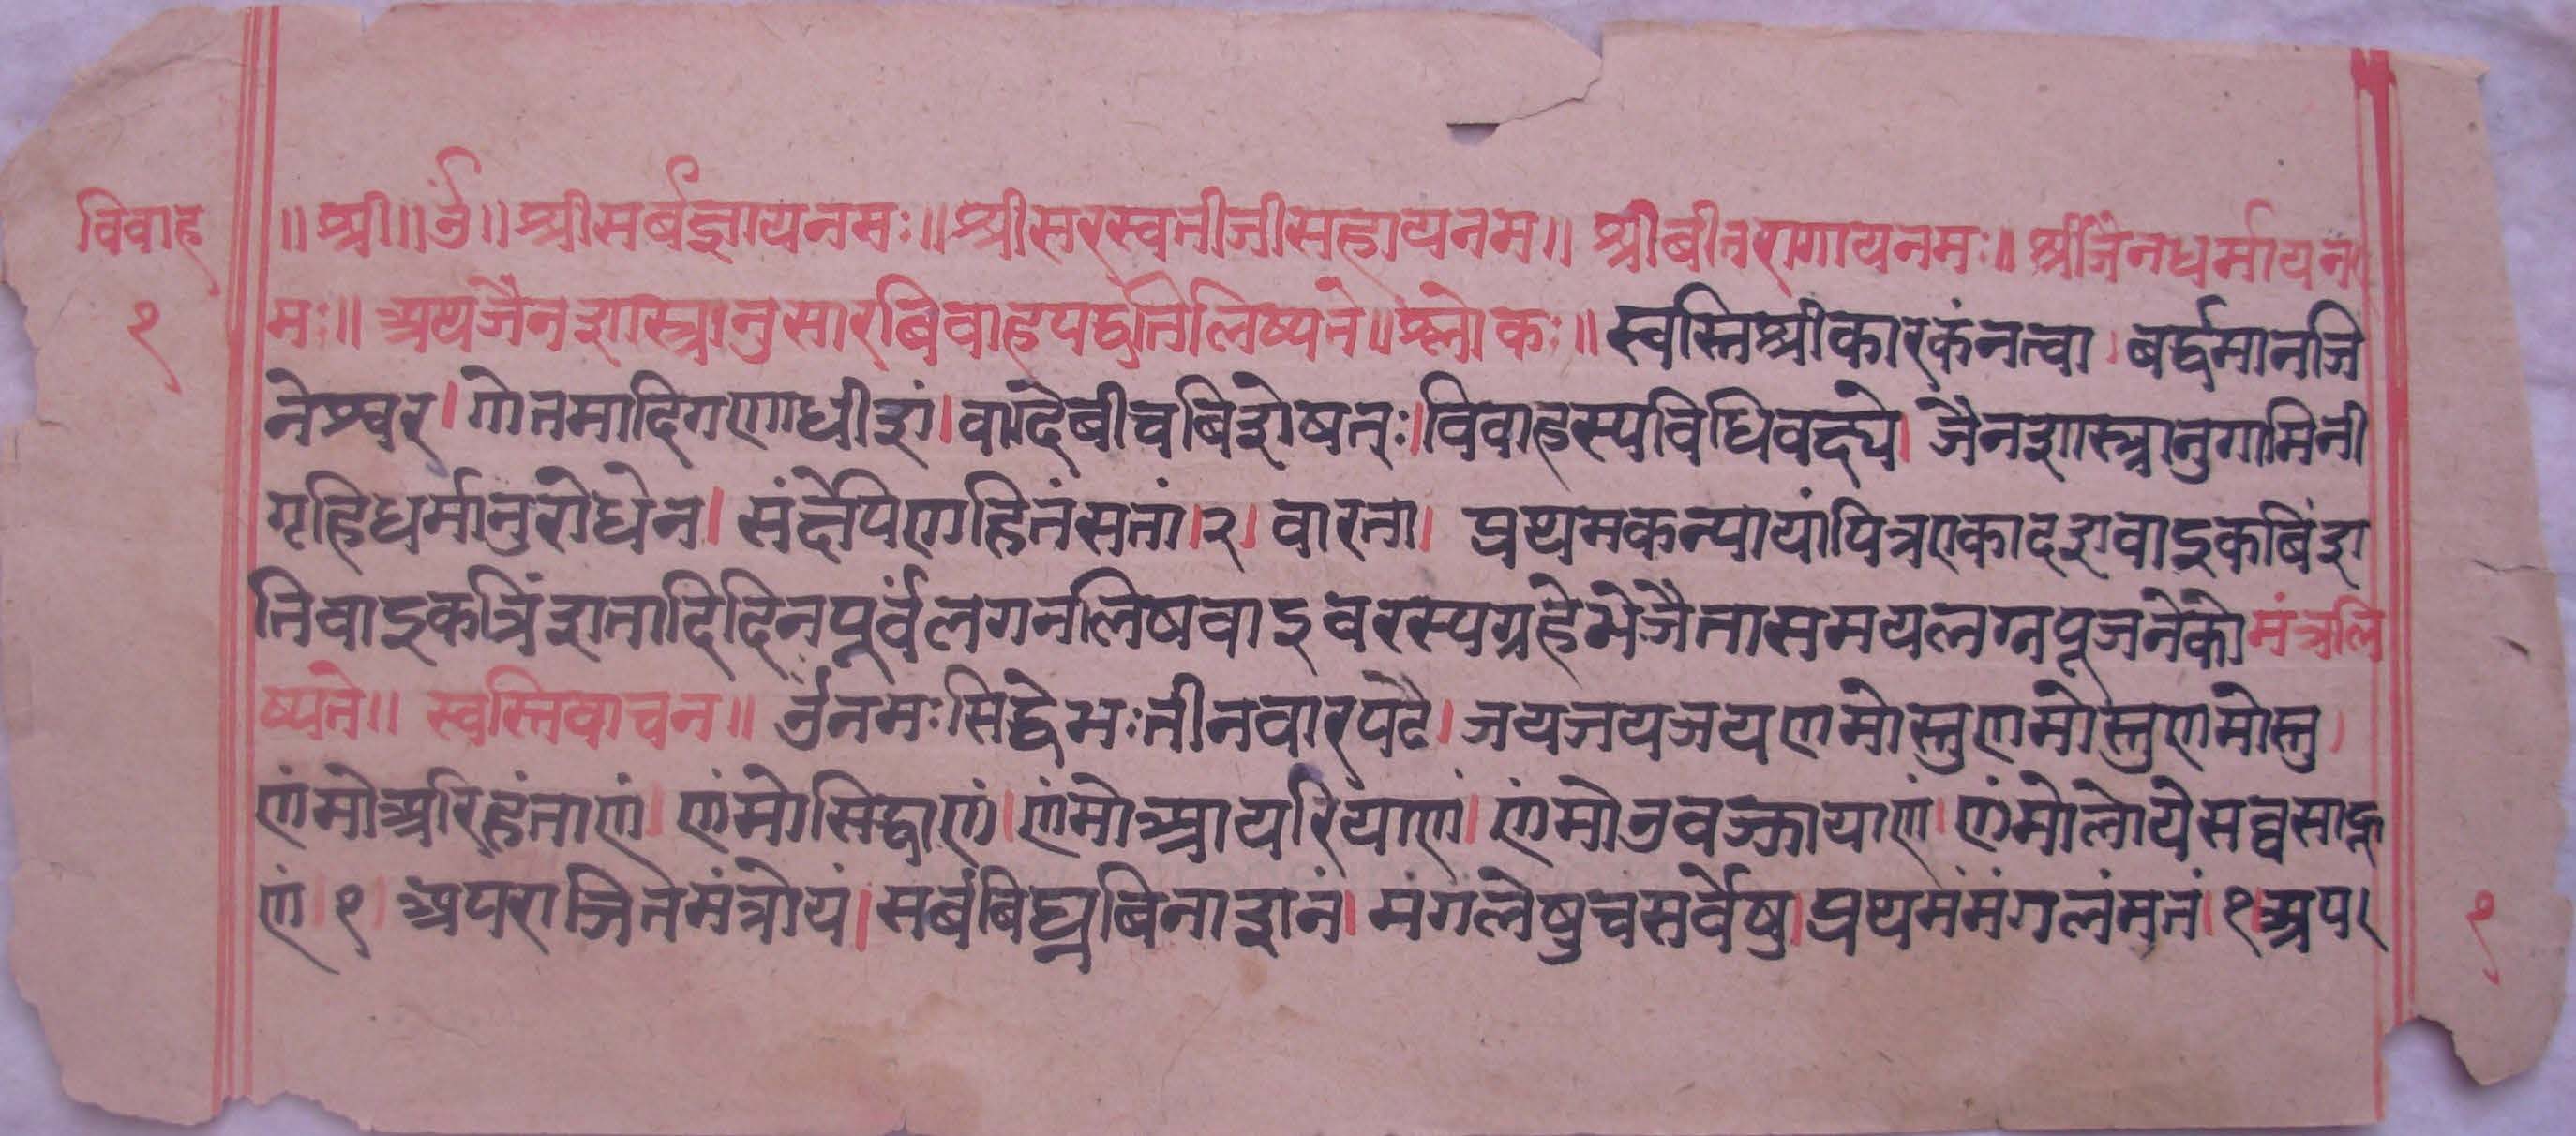 विवाह
१
॥ श्री॥ ॐ॥ श्रीसर्बज्ञायनमः॥ श्रीसरस्वतीजीसहायनम॥ श्रीबीतरागायनमः॥ श्रीजैनधर्मायन
मः॥ अथजैनशास्त्रानुसारबिवाहपर्द्धतिलिष्यते॥ श्लोकः॥ स्वस्तिश्रीकारकंनत्वा। बर्द्धमानजि
नेश्वर। गोतमादिगणाधीशं। वाग्देबीचबिशेषतः। विवाहस्यविधिवक्ष्ये। जैनशास्त्रानुगामिनी
गृहिधर्मानुरोधेन। संक्षेपिणहितंसतां।२। वारता। प्रथमकन्यायांपित्रएकादशवाइकबिंश
तिवाइकत्रिंशतादिदिनपूर्वंलगनलिषवाइवरस्यग्रहेभेजैतासमयलग्नपूजनेको मंत्रलि
ष्यते॥ स्वस्तिवाचन॥ ॐनमःसिद्धेभःतीनवारपढै। जयजयजयणमोस्तुणमोस्तुणमोस्तु।
णंमोअरिहंताणं। णंमोसिद्धाणं। णंमोआयरियाणं। णंमोउवज्झायाणं। णंमोलोयेसव्वसाहू
णं।१। अपराजितेमंत्रोयं। सर्बबिघ्नबिनाशनं। मंगलेषुचसर्वेषु। प्रथमंमंगलंमतं।१।अपर
१